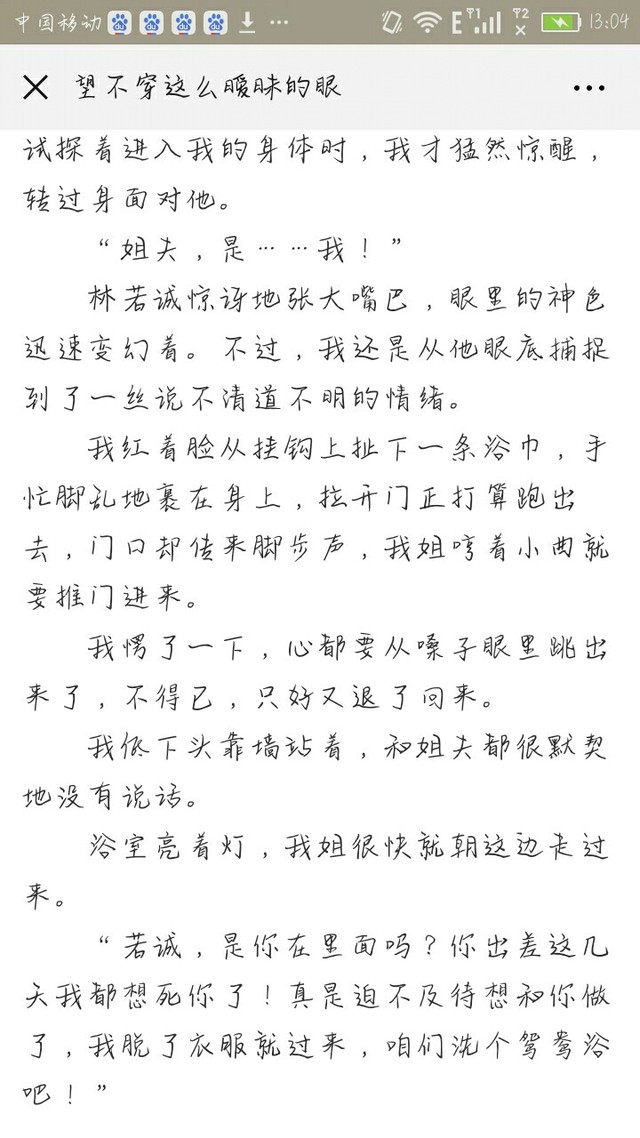 中国移动 ... E T1 T2 x 13:04
× 望不穿这么暧昧的眼 ...
试探着进入我的身体时，我才猛然惊醒，
转过身面对他。
“姐夫，是……我！”
林若诚惊讶地张大嘴巴，眼里的神色
迅速变幻着。不过，我还是从他眼底捕捉
到了一丝说不清道不明的情绪。
我红着脸从挂钩上扯下一条浴巾，手
忙脚乱地裹在身上，拉开门正打算跑出
去，门口却传来脚步声，我姐哼着小曲就
要推门进来。
我愣了一下，心都要从嗓子眼里跳出
来了，不得已，只好又退了回来。
我低下头靠墙站着，和姐夫都很默契
地没有说话。
浴室亮着灯，我姐很快就朝这边走过
来。
“若诚，是你在里面吗？你出差这几
天我都想死你了！真是迫不及待想和你做
了，我脱了衣服就过来，咱们洗个鸳鸯浴
吧！”